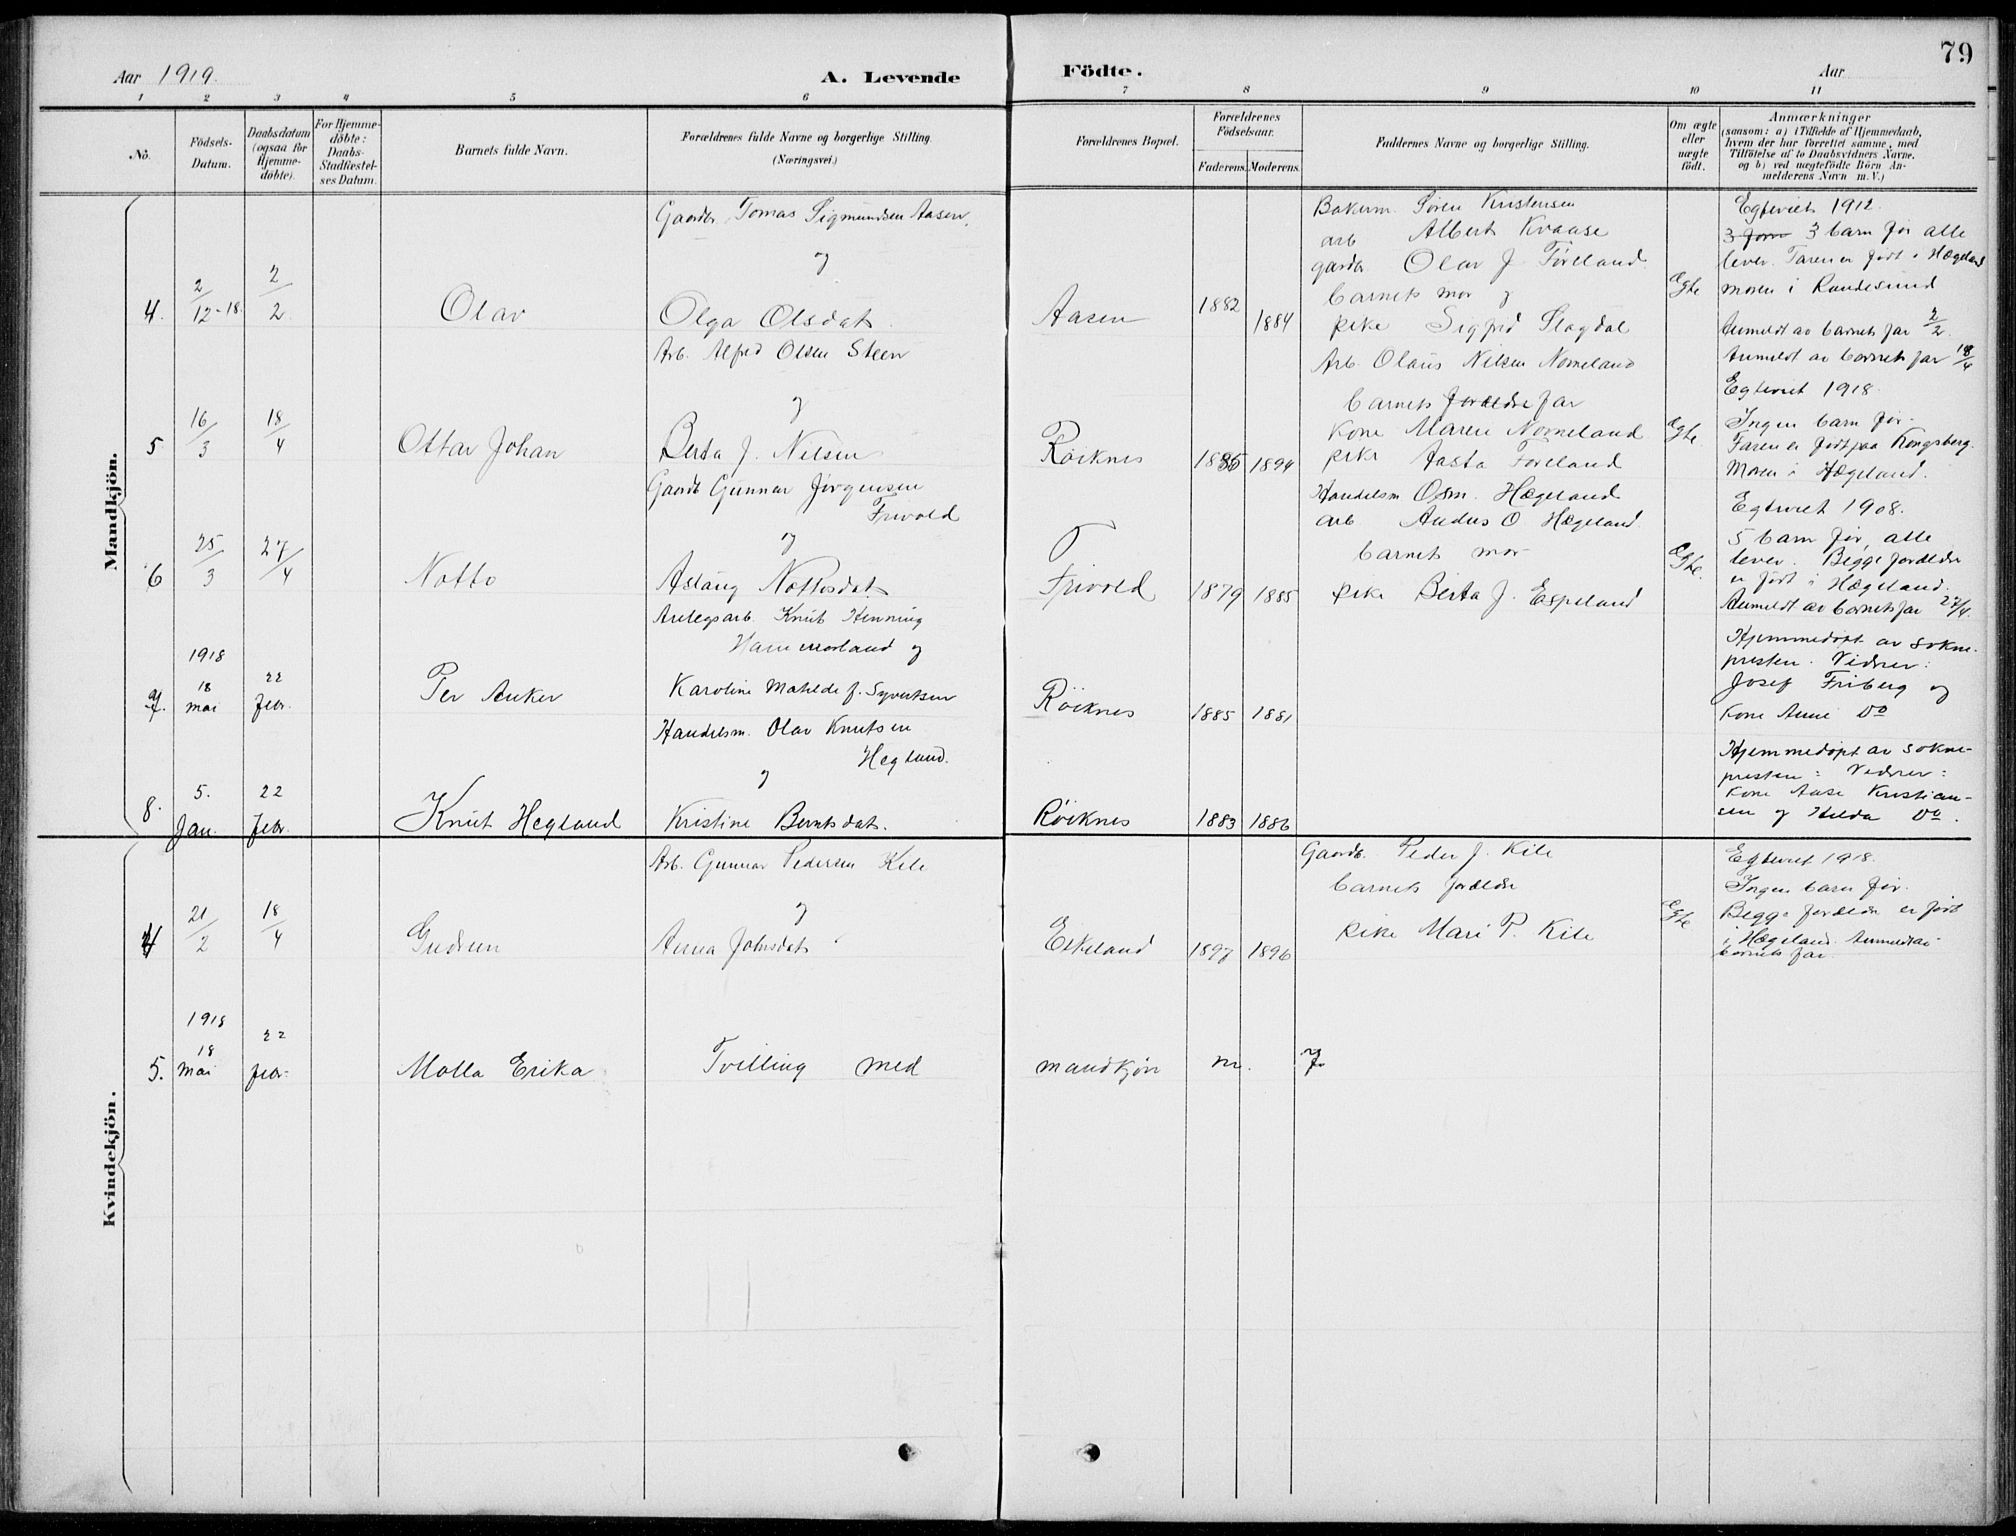 79
Aar 1919.
A. Levende
Födte.
Aar
1 2 3 4 5 6 7 8 9 10 11
No.
Födsels-
Datum.
Daabsdatum
(ogsaa for
Hjemme-
döbte).
For Hjemme-
döbte:
Daabs-
Stadfæstel-
ses Datum.
Barnets fulde Navn.
Forældrenes fulde Navne og borgerlige Stilling.
(Næringsvei.)
Forældrenes Bopæl.
Forældrenes
Födselsaar.
Faderens. Moderens.
Faddernes Navne og borgerlige Stilling.
Om ægte
eller
uægte
födt.
Anmærkninger
(saasom: a) i Tilfælde af Hjemmedaab,
hvem der har forrettet samme, med
Tilföielse af to Daabsvidners Navne,
og b) ved uægtefödte Börn An-
melderens Navn m. V.)
Mandkjön.
4.
2/12-18.
2/2
Olav
Gaardbr. Tomas Sigmundsen Aasen.
og
Olga Olsdat.
Aasen
1882
1884
Bakerm. Sören Kristensen
arb Albert Kvaase
gardbr Olav J. Föreland
barnets mor og
pike Sigfrid Slagdal
Ægte
Egteviet 1912.
3 före 3 barn før alle
lever. Faren er født i Hægeland
moren i Randesund
Anmeldt av barnets far 2/2.
5
16/3
18/4
Ottar Johan
Arb. Alfred Olsen Steen
og
Berta J. Nilsen
Röiknes
1885
1894
Arb. Olaus Nilsen Nomeland
barnets foreldre far
kone Maren Nomeland
pike Aasta Föreland
Ægte
Anmeldt av barnets far 18/4
Egteviet 1918.
Ingen barn før.
Faren er født paa Kongsberg.
Moren i Hægeland.
6
25/3
27/4
Notto
Gaardb Gunnar Jörgensen
Frivold
og
Aslaug Nottosdat.
Frivold
1879
1885
Handelsm Osm. Hægeland
arb Anders O Hægeland.
barnets mor
pike Berta J. Espeland
Ægte.
Egteviet 1908.
5 barn før, alle
lever. Begge foreldre
er født i Hægeland.
Anmeldt av barnets far 27/4.
7.
1918
18
mai
22
febr.
Per Anker
Anlegsarb. Knut Henning
Hammerland og
Karoline Matilde f. Syvertsen
Röiknes
1885
1881
Hjemmedöpt av sokne-
presten. Vidner:
Josef Friberg og
kone Anne Do
8.
5.
Jan.
22
febr.
Knut Hegland
Handelsm. Olav Knutsen
Hegland.
og
Kristine Berntsdat.
Röiknes
1883
1886
Hjemmedöpt av sokne-
presten: Vidner:
kone Aase Kristian-
sen og Hilda Do.
Kvindekjön.
4
21/2
18/4
Gudrun
Arb. Gunnar Pedersen Kile
og
Anna Johnsdat.
Eskeland
1897
1896
Gaardb. Peder J. Kile
barnets foreldre
pike Mari P. Kile
Ægte
Egteviet 1918.
Ingen barn før.
Begge foreldre er født
i Hægeland. Anmeldt av
barnets far.
5.
1918
18
mai
22
febr.
Molla Erika
Tvilling med
mandkjön
nr.
7